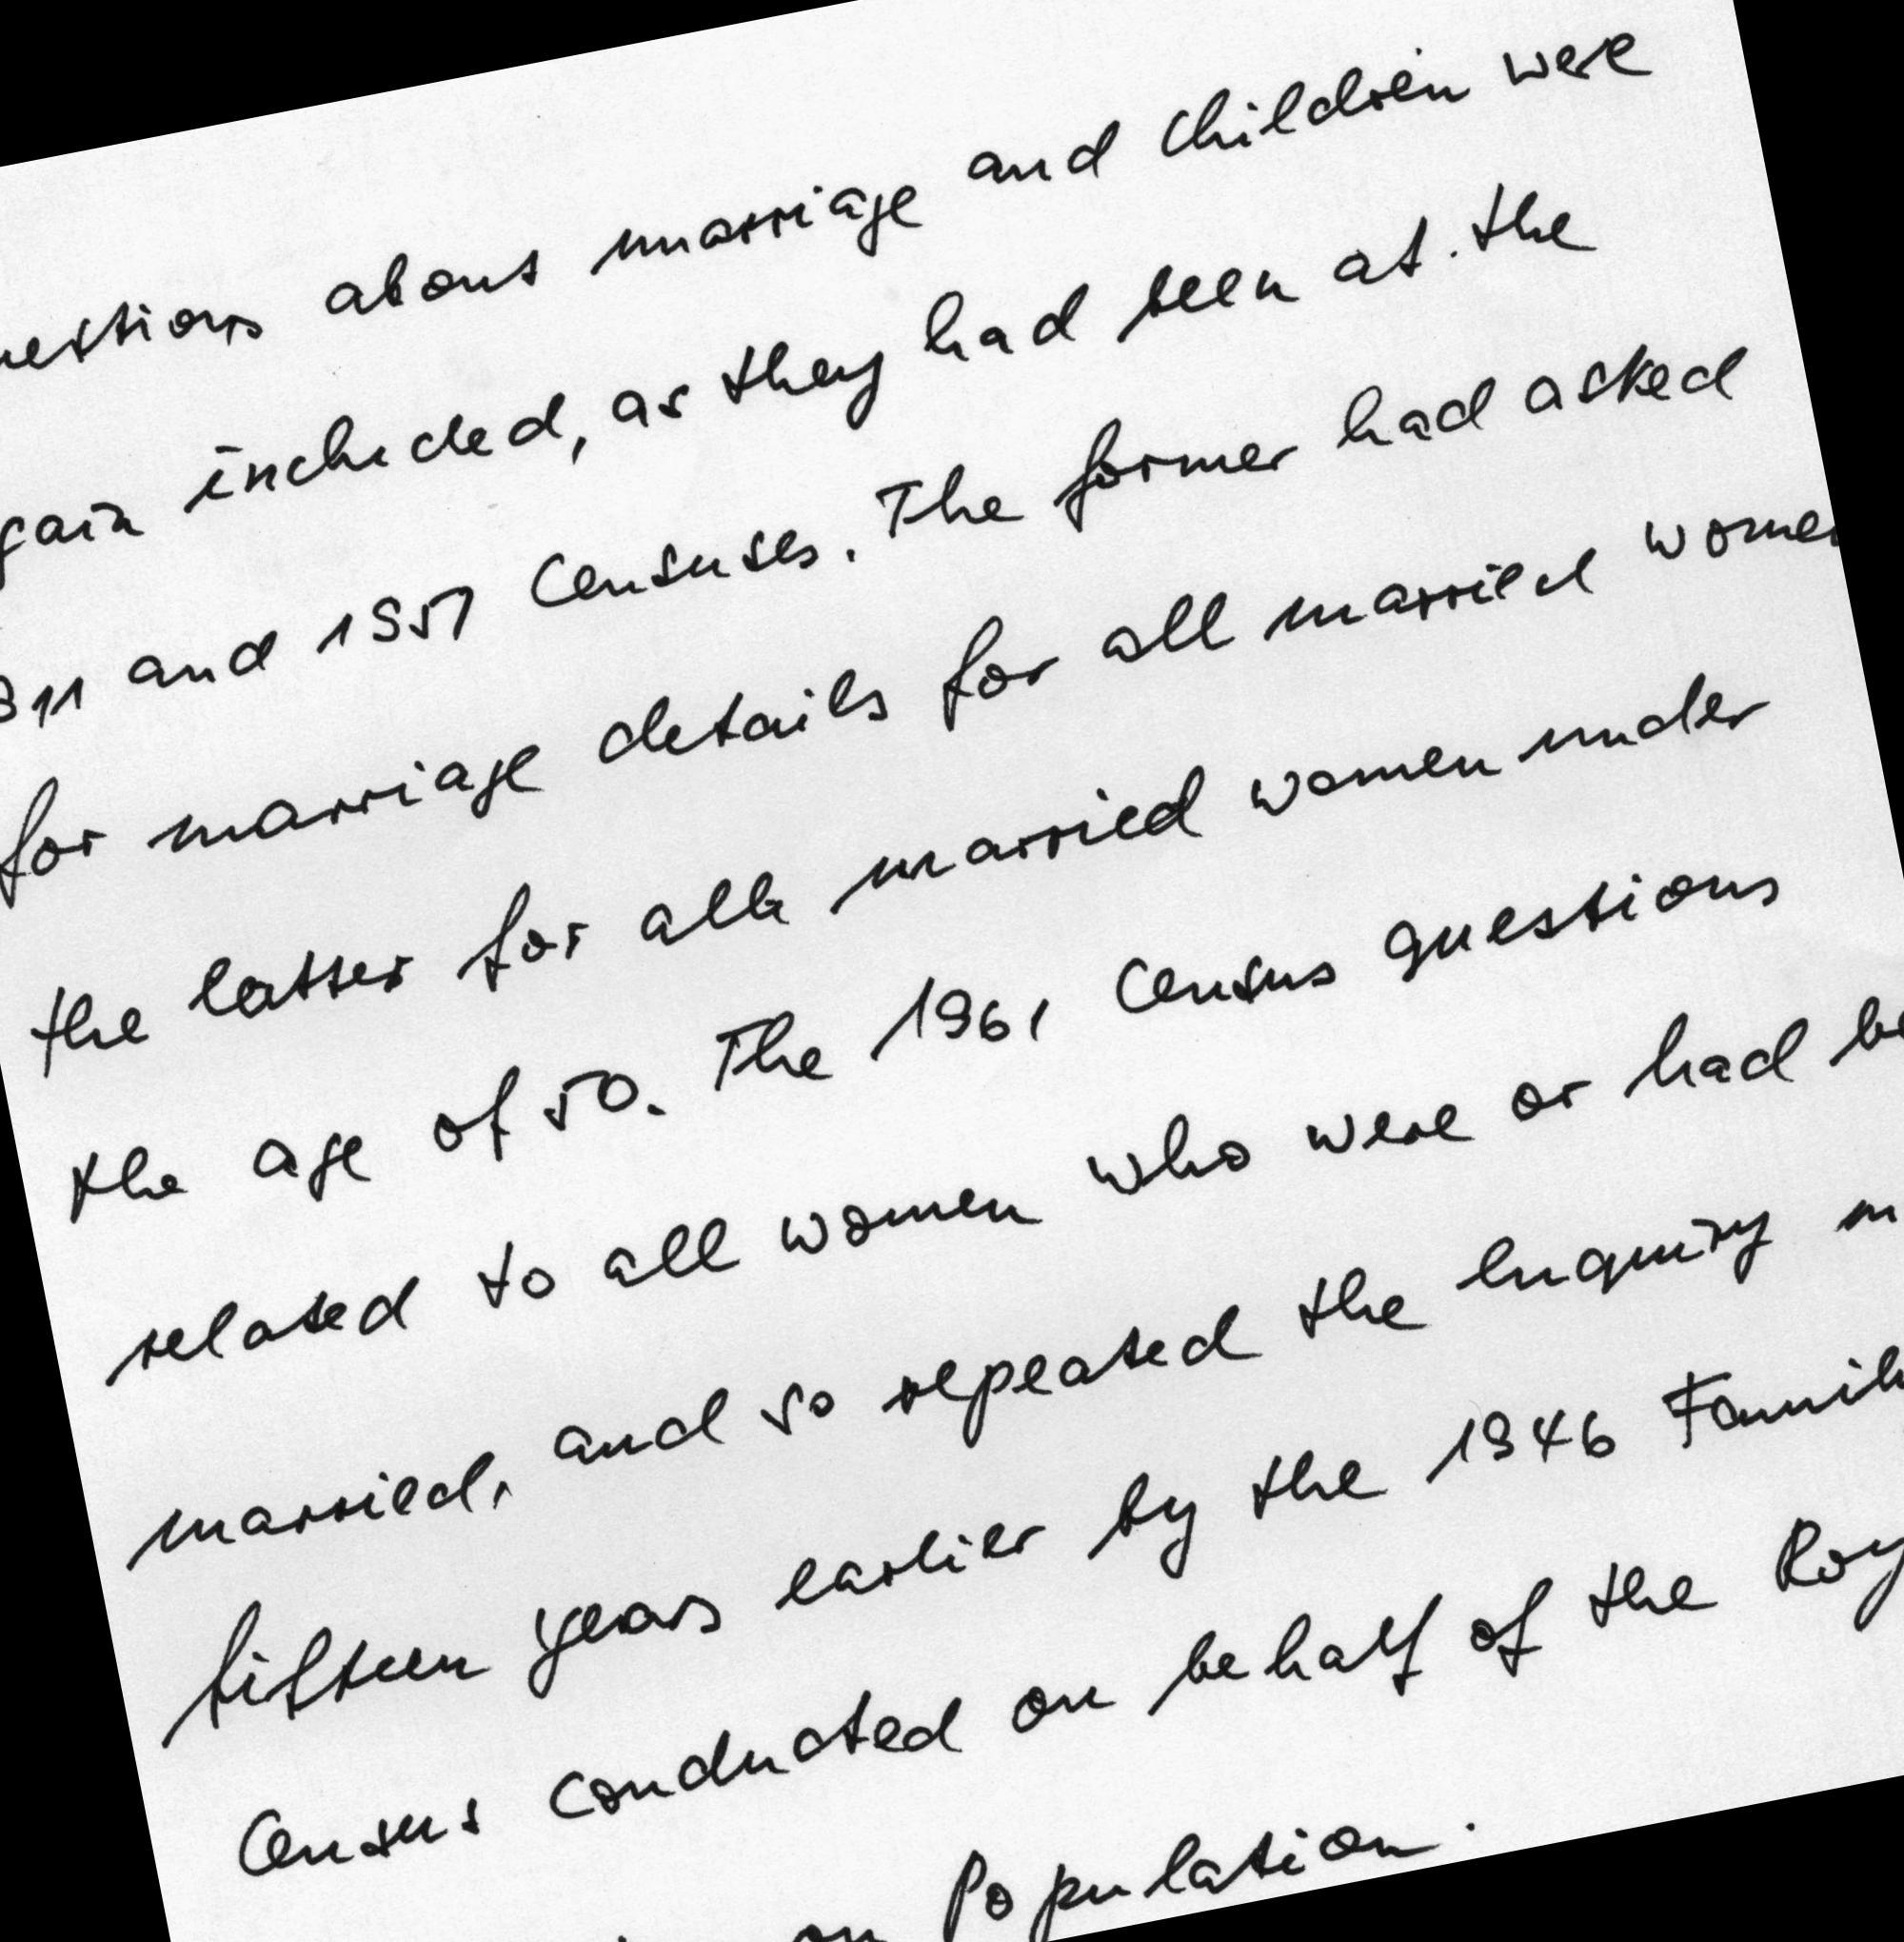 about marriage and children were
included, as they had been at the
and 1951 Censuses. The former had asked
for marriage details for all married
the latter for all married women under
the age of 50. The 1961 Census questions
related to all women who were or had
married, and so repeated the enquiry
fifteen years earlier by the 1946
Census conducted on behalf of the
on Population.